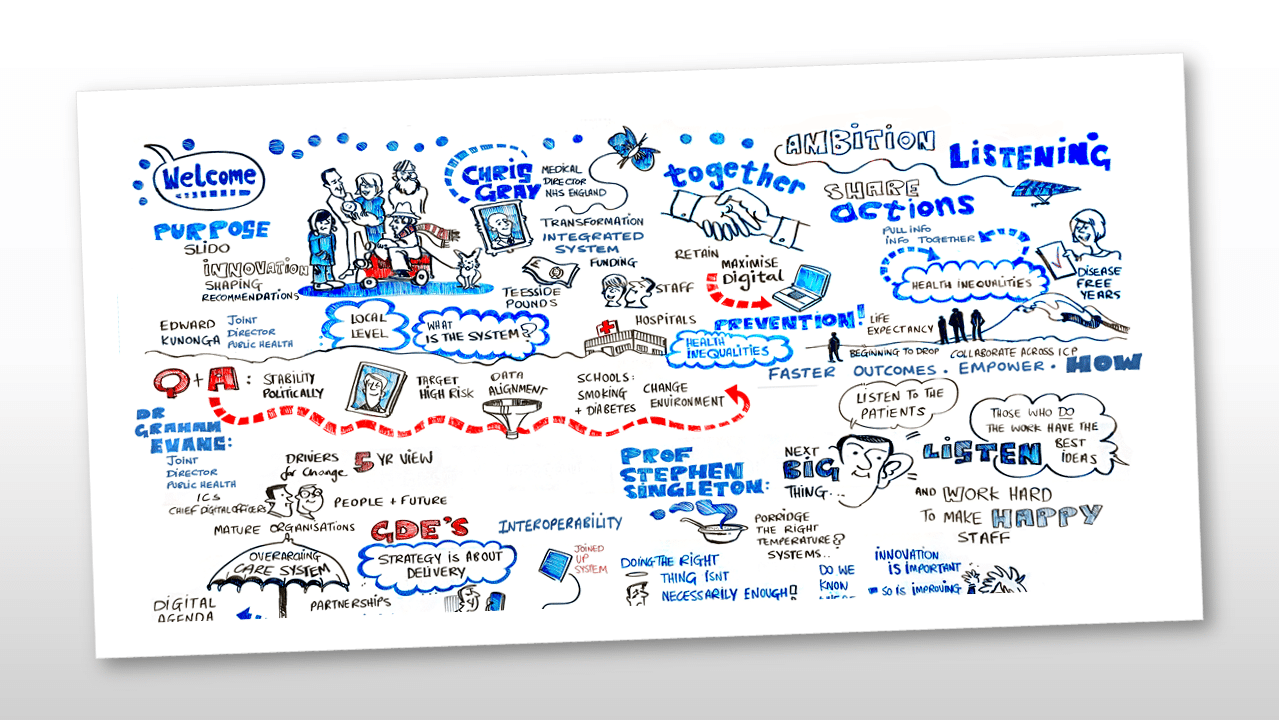 Welcome
PURPOSE
SLIDO
INNOVATION
SHAPING
RECOMMENDATIONS
EDWARD
KUNONGA
JOINT
DIRECTOR
PUBLIC HEALTH
LOCAL
LEVEL
WHAT
IS THE SYSTEM?
CHRIS
GRAY
MEDICAL
DIRECTOR
NHS ENGLAND
TRANSFORMATION
INTEGRATED
SYSTEM
FUNDING
TEESSIDE
POUNDS
STAFF
HOSPITALS
together
RETAIN
MAXIMISE
Digital
PREVENTION!
HEALTH
INEQUALITIES
AMBITION
LISTENING
SHARE
actions
PULL INFO
INFO TOGETHER
HEALTH INEQUALITIES
DISEASE
FREE
YEARS
LIFE
EXPECTANCY
BEGINNING TO DROP
COLLABORATE ACROSS ICP
FASTER OUTCOMES. EMPOWER. HOW
Q+A:
STABILITY
POLITICALLY
TARGET
HIGH RISK
DATA
ALIGNMENT
SCHOOLS:
SMOKING
+ DIABETES
CHANGE
ENVIRONMENT
DR
GRAHAM
EVANS:
JOINT
DIRECTOR
PUBLIC HEALTH
ICS
CHIEF DIGITAL OFFICERS
DRIVERS
for change
5 YR VIEW
PEOPLE + FUTURE
MATURE ORGANISATIONS
GDE'S
INTEROPERABILITY
OVERARCHING
CARE SYSTEM
STRATEGY IS ABOUT
DELIVERY
JOINED
UP
SYSTEM
DIGITAL
AGENDA
PARTNERSHIPS
PROF
STEPHEN
SINGLETON:
PORRIDGE
THE RIGHT
TEMPERATURE?
SYSTEMS..
DOING THE RIGHT
THING ISNT
NECESSARILY ENOUGH!
NEXT
BIG
THING...
LISTEN TO THE
PATIENTS
THOSE WHO DO
THE WORK HAVE THE
BEST
IDEAS
LISTEN
AND WORK HARD
TO MAKE HAPPY
STAFF
DO WE
KNOW
WHERE
INNOVATION
IS IMPORTANT
SO IS IMPROVING